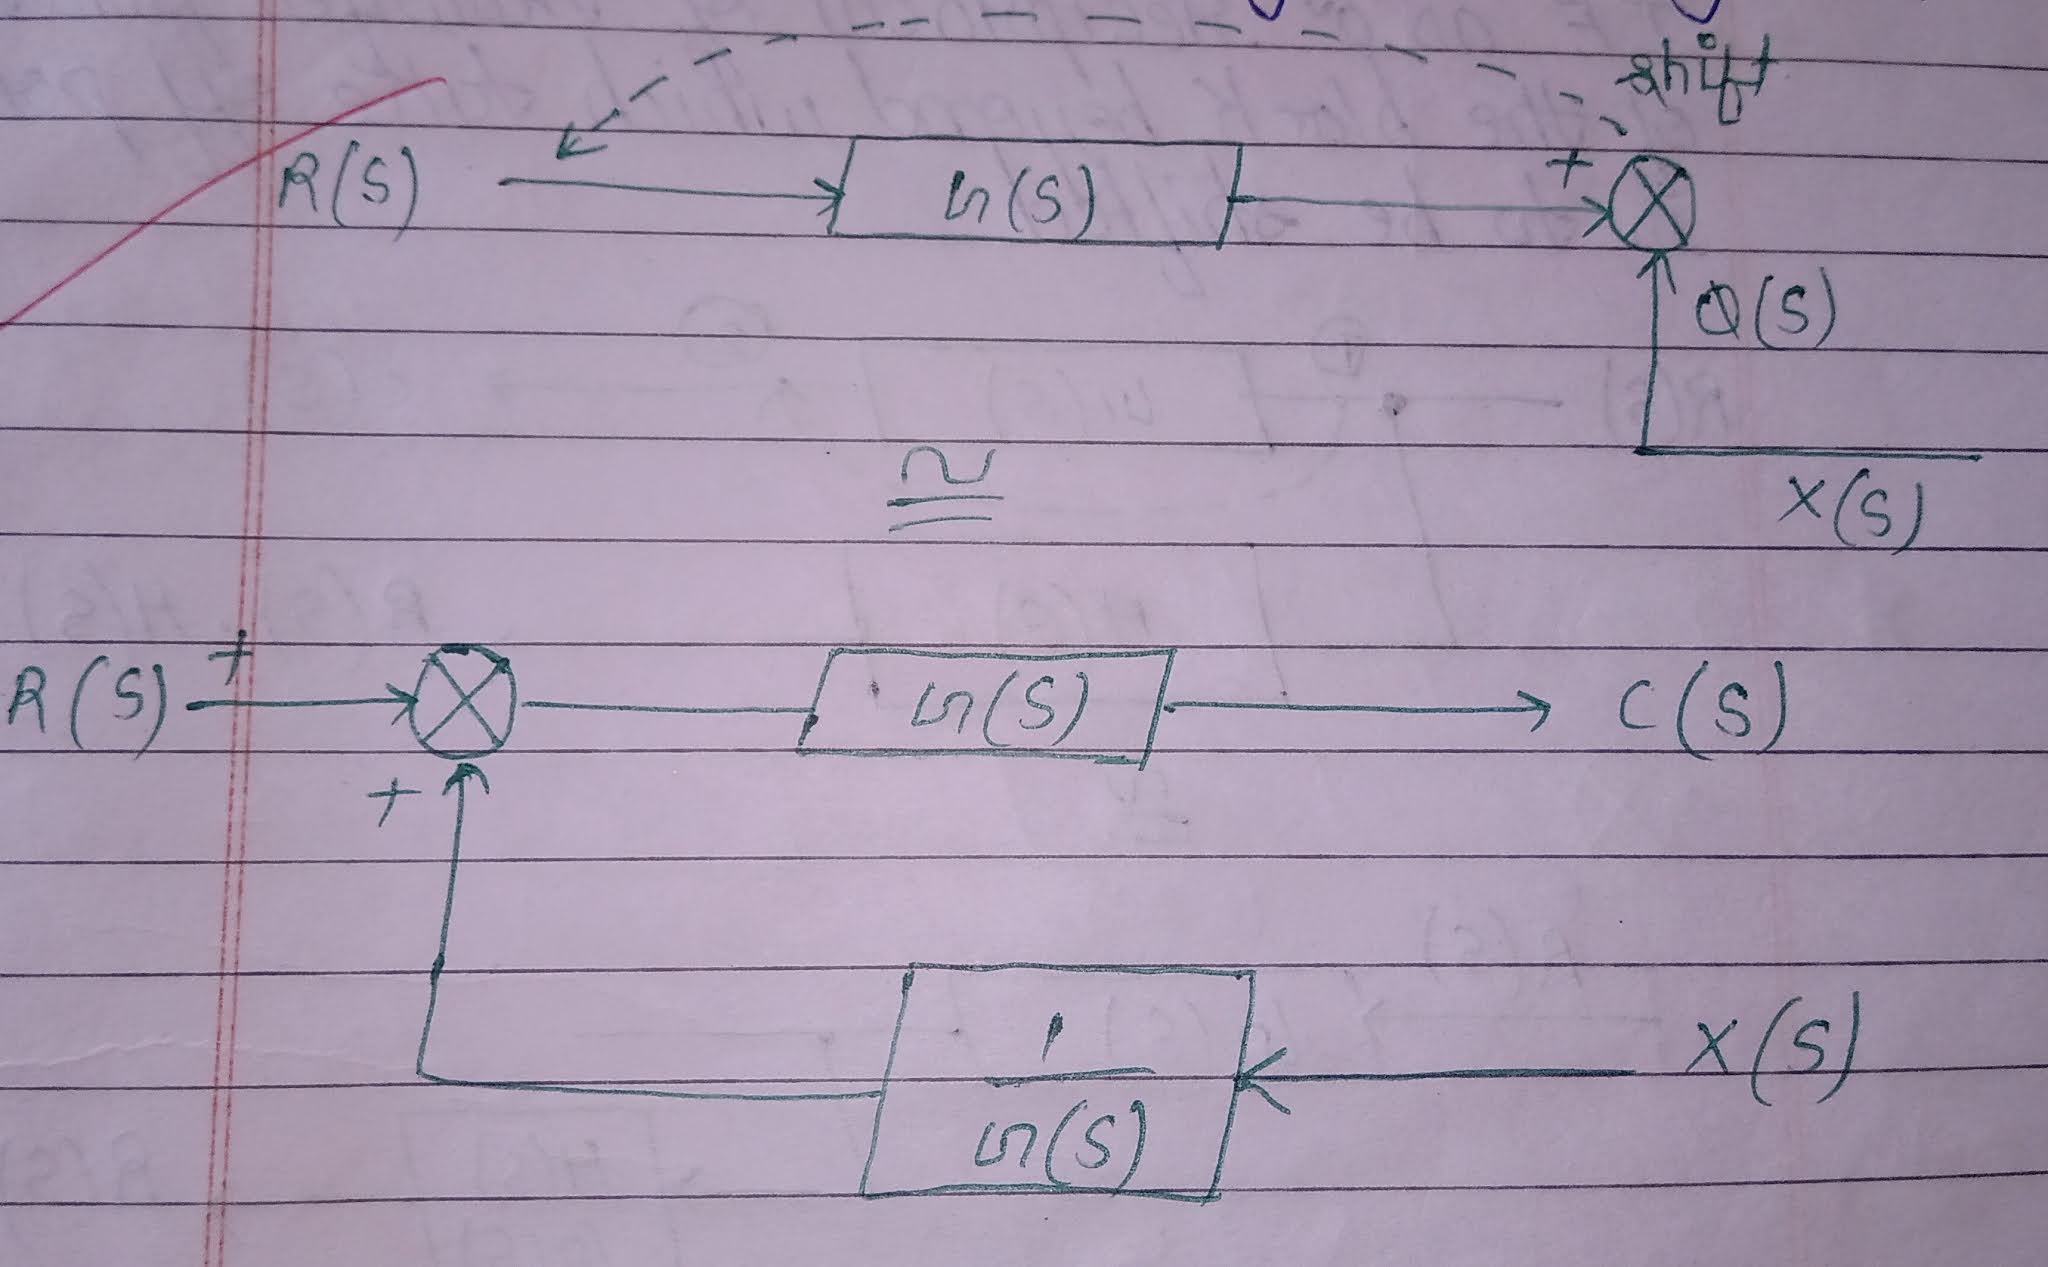 shift
R(S) G(S) +
Q(S)
X(S)
≅
R(S) + G(S) C(S)
+
1
G(S)
X(S)